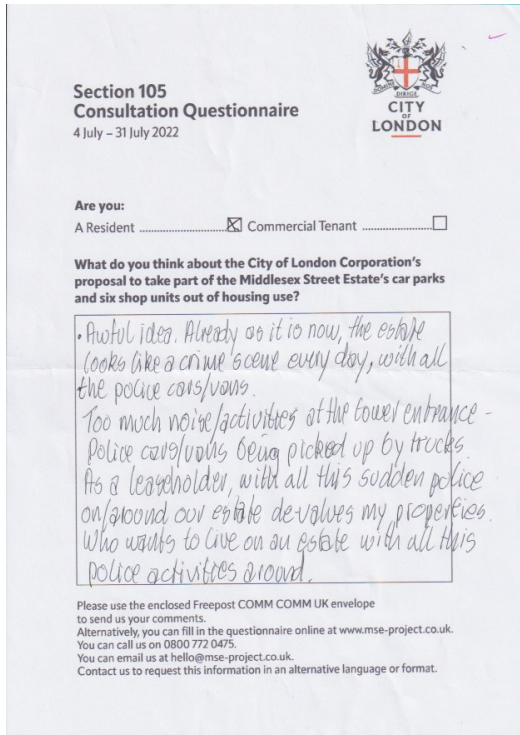 Section 105
Consultation Questionnaire
4 July – 31 July 2022
DIRIGE
CITY
OF
LONDON
Are you:
A Resident ............................ ☒ Commercial Tenant ...................... ☐
What do you think about the City of London Corporation's
proposal to take part of the Middlesex Street Estate's car parks
and six shop units out of housing use?
• Awful idea. Already as it is now, the estate
looks like a crime scene every day, with all
the police cars/vans.
Too much noise/activities at the tower entrance -
Police cars/vans being picked up by trucks.
As a leaseholder, with all this sudden police
on/around our estate de-values my properties.
Who wants to live on an estate with all this
police activities around.
Please use the enclosed Freepost COMM COMM UK envelope
to send us your comments.
Alternatively, you can fill in the questionnaire online at www.mse-project.co.uk.
You can call us on 0800 772 0475.
You can email us at hello@mse-project.co.uk.
Contact us to request this information in an alternative language or format.